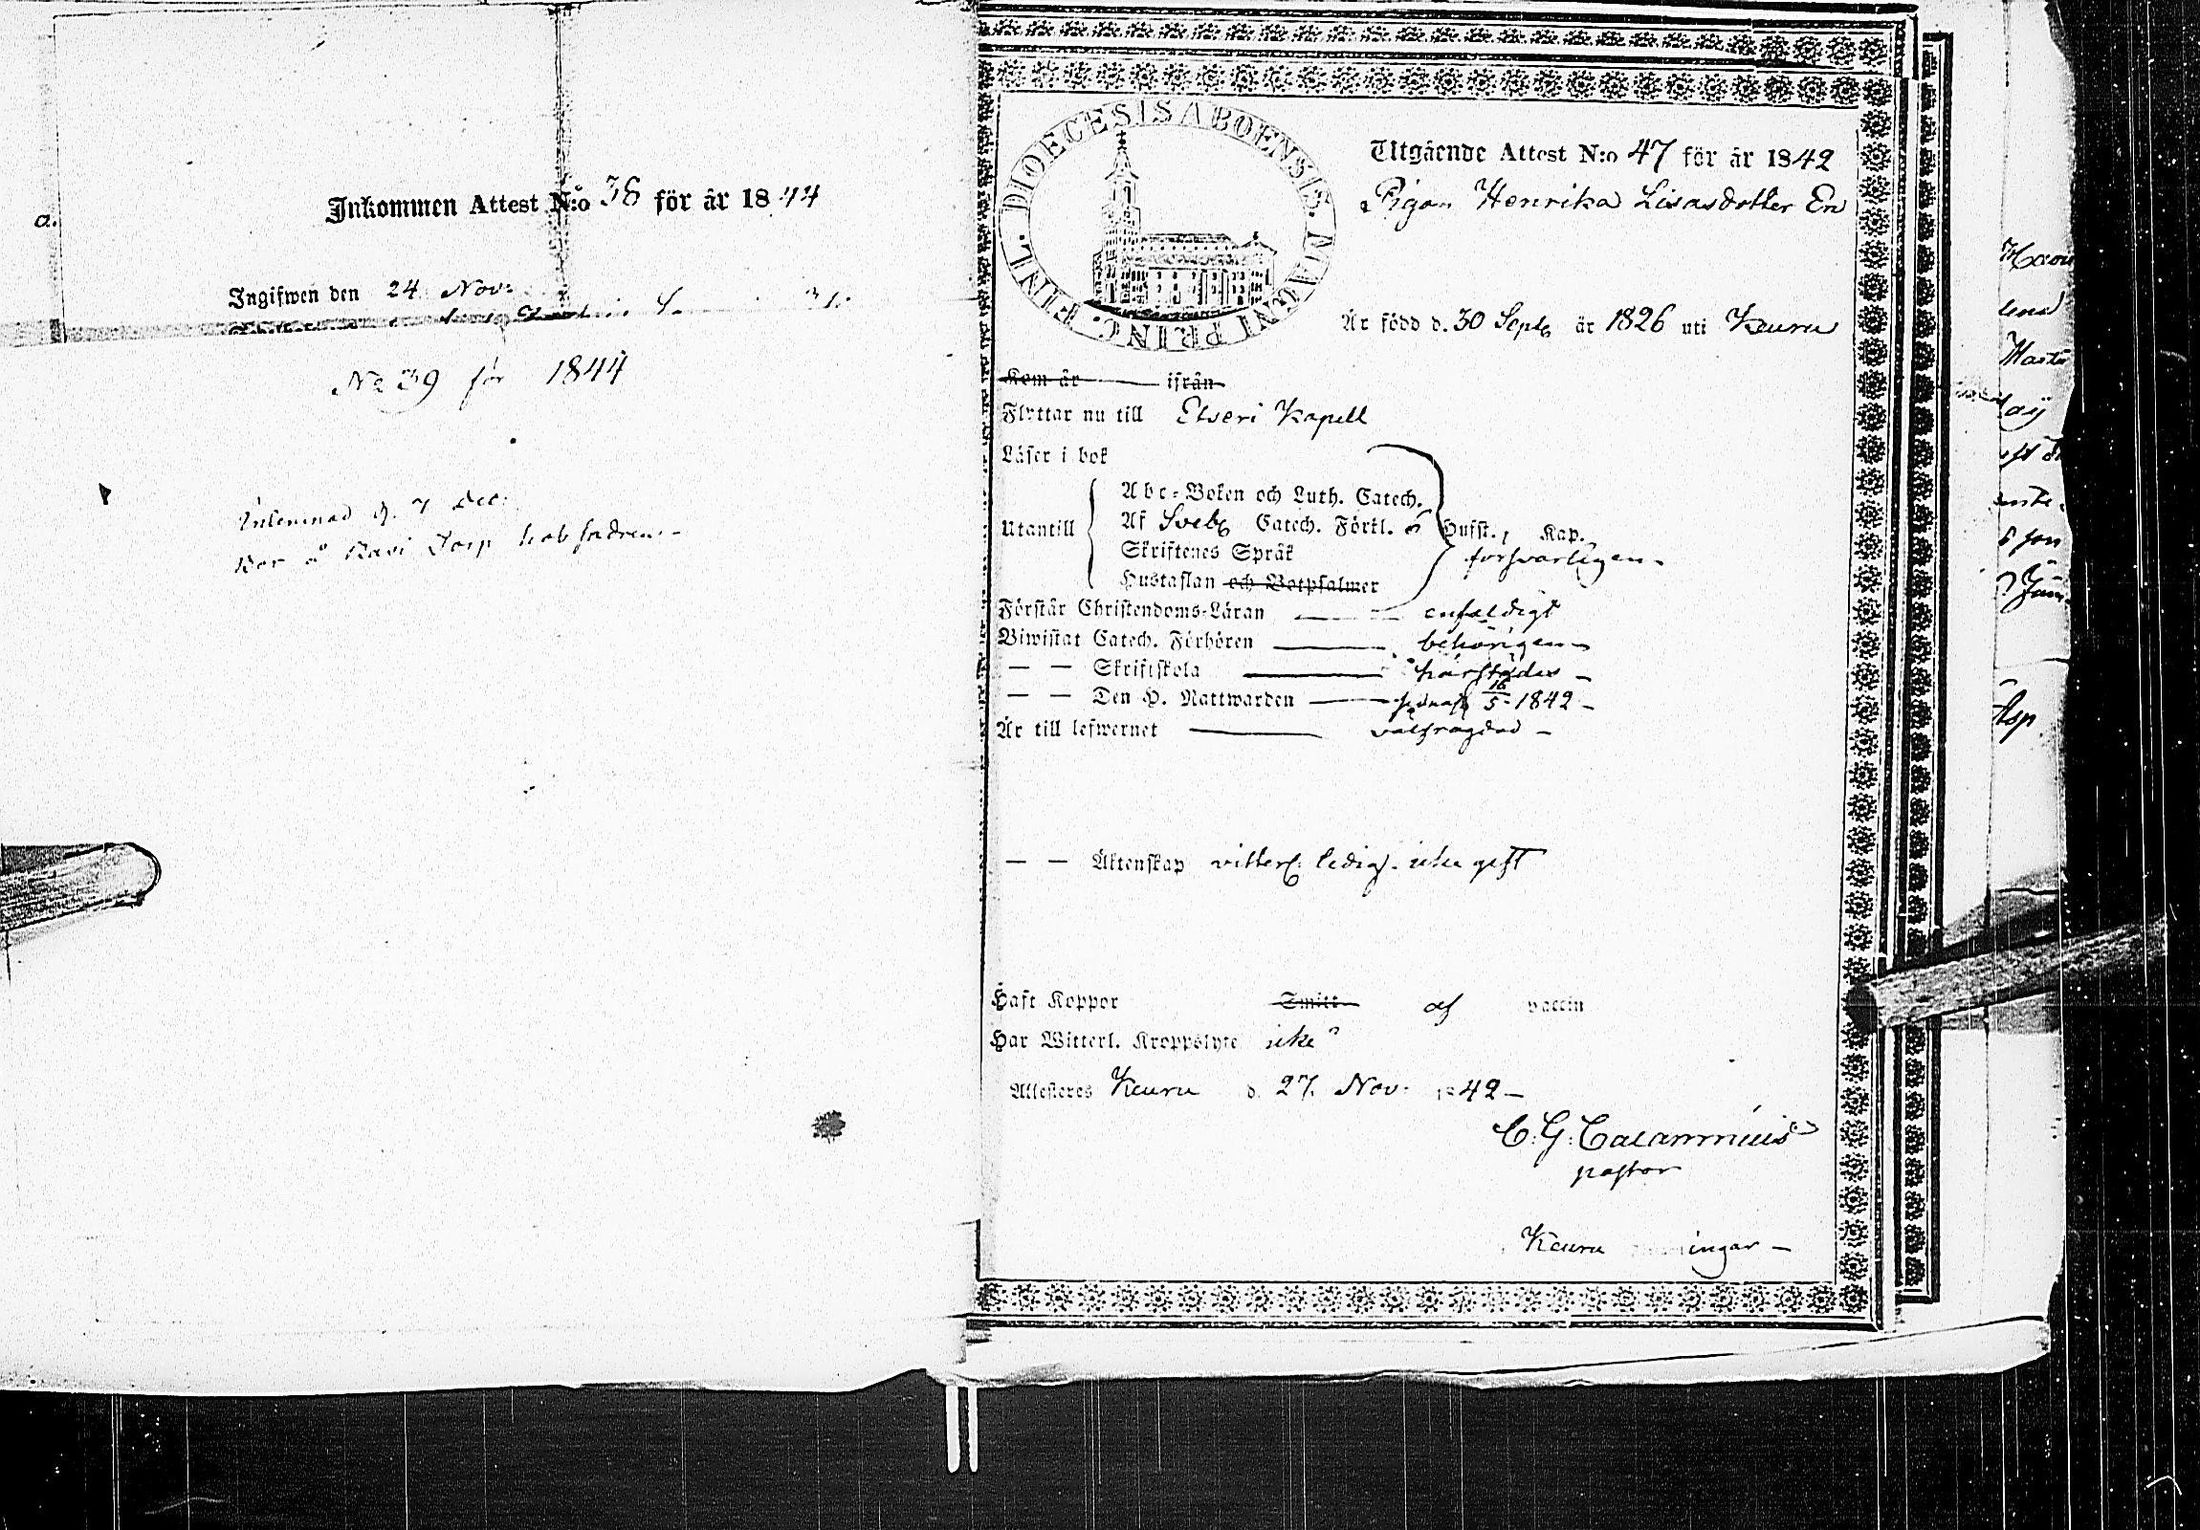 a.
Inkommen Attest N:o 38 för år 1844
Ingifwen den 24 Nov:
No 39 för 1844
Inlemnad d. 7 Dec:
Bor å Torp
DIOECESIS ABOENSIS. MAGNI PRINC. FINL.
Utgående Attest N:o 47 för år 1842
Pigan Henrika Lisasdotter En
Är född d. 30 Sept. år 1826 uti Keuru
Kom år ifrån
Flyttar nu till Etseri Kapell
Läser i bok
Utantill
Abc-Boken och Luth. Catech.
Af Sveb. Catech. Förkl. 6 Hufst., Kap.
Skriftenes Språk
försvarligen
Hustaflan och Botpsalmer
Förstår Christendoms-Läran enfaldigt
Biwistat Catech. Förhören behörigen
— — Skriftskola härstädes
— — Den H. Nattwarden 16/5 1842
Är till lefwernet välfrägdad
— — Äktenskap ledig. icke gift
Haft Koppor Smitt af vaccin
Har Witterl. Kroppslyte icke
Attesteres Keuru d. 27. Nov: 1842
C. G. Calamnius
pastor
Keuru
Asp